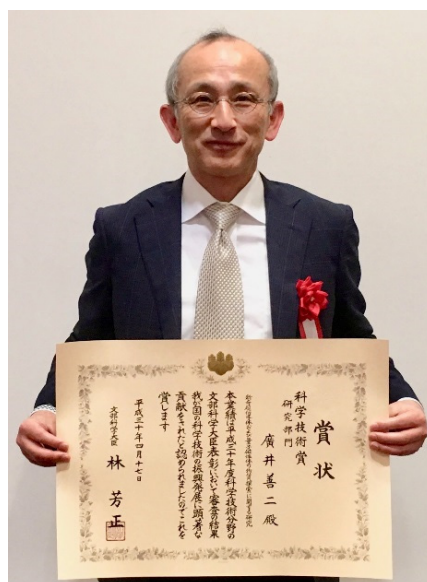 賞状
科学技術賞
研究部門
に関する研究
廣井善二殿
本業績は平成三十年度科学技術分野の
文部科学大臣表彰において審査の結果
我が国の科学技術の振興発展に顕著な
貢献をされたと認められましたのでこれを
賞します
平成三十年四月十七日
文部科学大臣 林 芳正